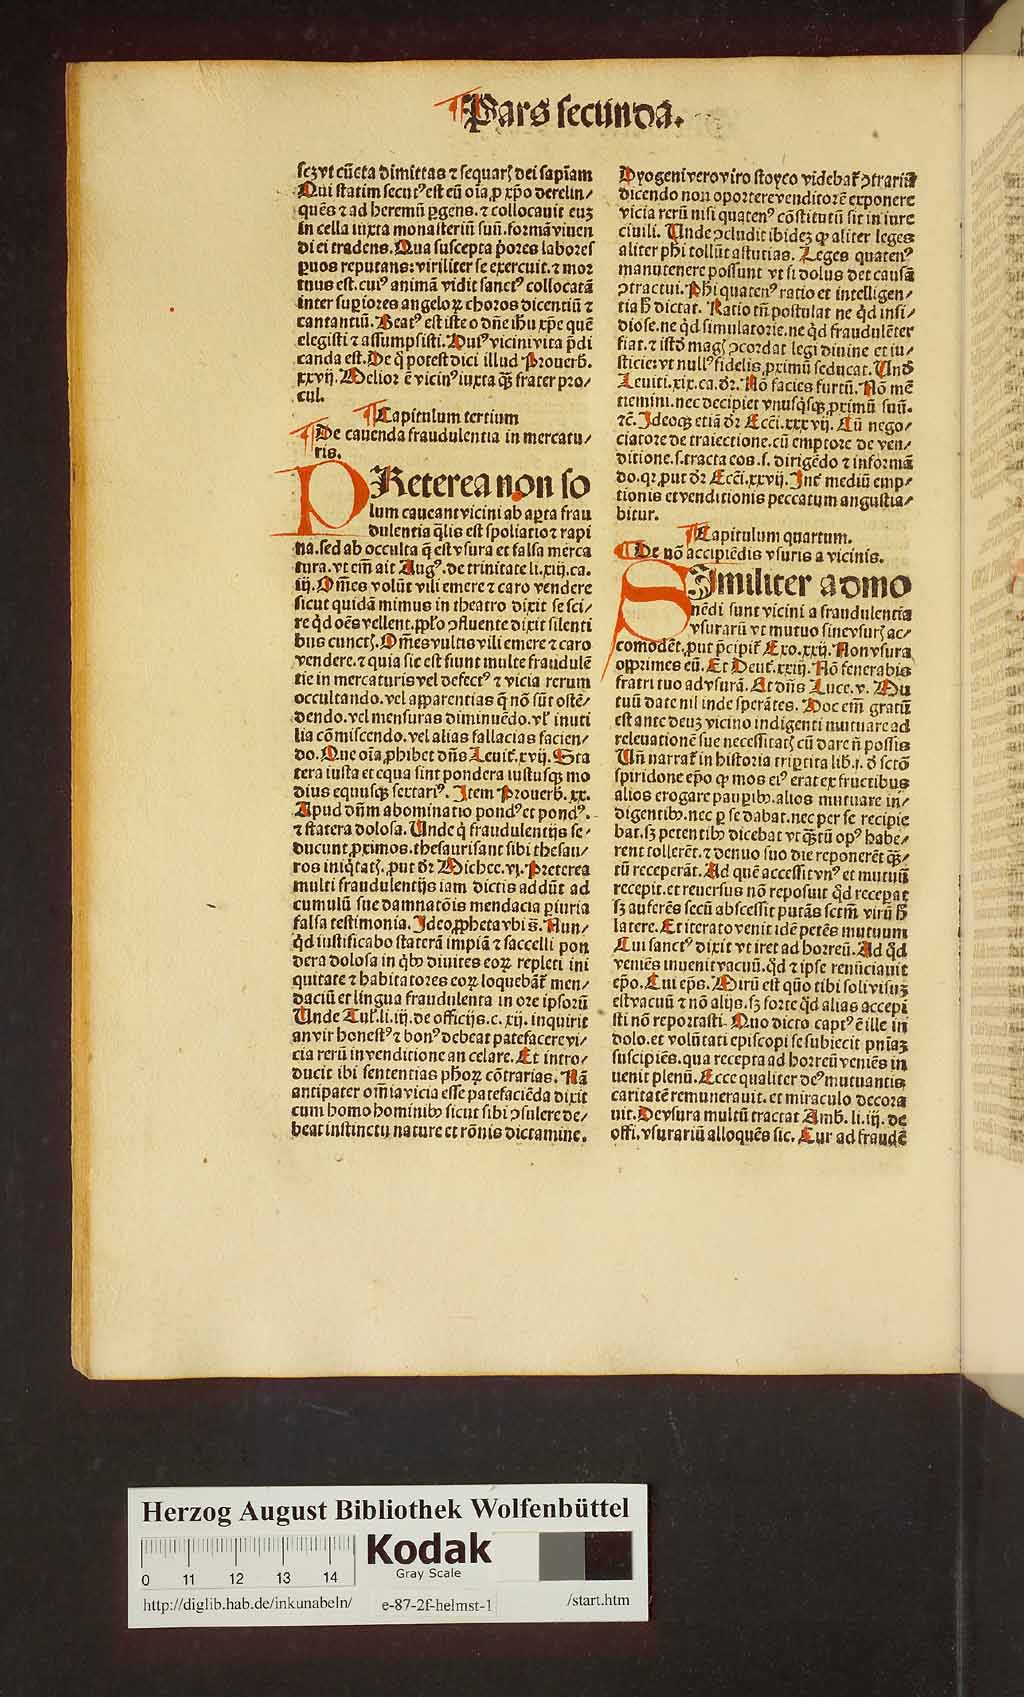 Pars secunda.
scz vt cūcta dimittas ⁊ sequarꝭ dei sapiam
Qui statim secutꝰ est eū oīa ꝓ xp̄o derelin⸗
quēs ⁊ ad heremū ꝑgens. ⁊ collocauit euꝫ
in cella iuxta monasteriū suū. formā viuen
di ei tradens. Qua suscepta p̄ores labores
ꝑuos reputans: viriliter se exercuit. ⁊ mor
tuus est. cuiꝰ animā vidit sanctꝰ collocatā
inter supiores angeloꝝ choros dicentiū ⁊
cantantiū. Beatꝰ est iste o dn̄e ih̄u xp̄e quē
elegisti ⁊ assumpsisti. Huiꝰ vicini vita p̄di
canda est. De q̄ potest dici illud Prouerb.
xxvij. Melior ē vicinꝰ iuxta qꝫ frater pro⸗
cul.
Capitulum tertium
De cauenda fraudulentia in mercatu⸗
ris.
PReterea non so
lum caueant vicini ab aꝑta frau
dulentia q̄lis est spoliatio ⁊ rapi
na. sed ab occulta q̄ est vsura et falsa merca
tura. vt em̄ ait Augꝰ. de trinitate li. xiij. ca.
iij. Om̄es volūt vili emere ⁊ caro vendere
sicut quidā mimus in theatro dixit se sci⸗
re qd̄ oēs vellent. ꝓpl̄o ꝯfluente dixit silenti
bus cunctꝭ. Om̄es vultis vili emere ⁊ caro
vendere. ⁊ quia sic est fiunt multe fraudulē
tie in mercaturis vel defectꝰ ⁊ vicia rerum
occultando. vel apparentias q̄ nō sūt ostē⸗
dendo. vel mensuras diminuēdo. vl̓ inuti
lia cōmiscendo. vel alias fallacias facien⸗
do. Que oīa ꝓhibet dn̄s Leuit̄. xvij. Sta
tera iusta et equa sint pondera iustusqꝫ mo
dius equusqꝫ sextariꝰ. Item Prouerb. xx.
Apud dn̄m abominatio pondꝰ et pondꝰ.
⁊ statera dolosa. Unde q̄ fraudulentijs se⸗
ducunt ꝓximos. thesaurisant sibi thesau⸗
ros iniq̄tatꝭ. ꝓut dr̄ Michee. vj. Preterea
multi fraudulentijs iam dictis addūt ad
cumulū sue damnatōis mendacia ꝑiuria
falsa testimonia. Ideo ꝓpheta vbi s̄. Nun⸗
qd̄ iustificabo staterā impiā ⁊ saccelli pon
dera dolosa in qibꝫ diuites eoꝝ repleti ini
quitate ⁊ habitatores eoꝝ loquebāt̄ men⸗
daciū et lingua fraudulenta in ore ipsorū
Unde Tul̓. li. iij. de officijs. c. xij. inquirit
an vir honestꝰ ⁊ bonꝰ debeat patefacere vi⸗
cia rerū in venditione an celare. Et intro⸗
ducit ibi sententias ph̄oꝝ cōtrarias. Nā
antipater om̄ia vicia esse patefaciēda dixit
cum homo hominibꝫ sicut sibi ꝯsulere de⸗
beat instinctu nature et rōnis dictamine.
Dyogeni vero viro stoyco videbat̄ ꝯtrariū
dicendo non oportere venditorē exponere
vicia rerū nisi quatenꝰ cōstitutū sit in iure
ciuili. Unde ꝯcludit ibideꝫ qꝫ aliter leges
aliter ph̄i tollūt astutias. Leges quatenꝰ
manu tenere possunt vt si dolus det causā
ꝯtractui. Ph̄i quatenꝰ ratio et intelligen⸗
tia h̄ dictat. Ratio tn̄ postulat ne qd̄ insi⸗
diose. ne qd̄ simulatorie. ne qd̄ fraudulēter
fiat. ⁊ istd̄ magꝭ ꝯcordat legi diuine et iu⸗
sticie: vt nullꝰ fidelis ꝓximū seducat. Und̄
Leuiti. xix. ca. dr̄. Nō facies furtū. Nō mē
tiemini. nec decipiet vnusq̄sqꝫ ꝓximū suū.
⁊c̄. Ideoqꝫ etiā dr̄ Ecci. xxxvij. Cū nego⸗
ciatore de traiectione. cū emptore de ven⸗
ditione. s. tracta eos. s. dirigēdo ⁊ informā
do. qꝛ ꝓut dr̄ Ecci. xxvij. Int̄ mediū emp⸗
tionis et venditionis peccatum angustia⸗
bitur.
Capitulum quartum.
De nō accipiēdis vsuris a vicinis.
SImiliter admo
nēdi sunt vicini a fraudulentia
vsurarū vt mutuo sine vsurꝭ ac⸗
comodēt. ꝓut p̄cipit̄ Exo. xxij. Non vsura
opprimes eū. Et Deut̄. xxiij. Nō fenerabis
fratri tuo ad vsurā. Et dn̄s Luce. v. Mu
tuū date nil inde sperātes. Hoc em̄ gratū
est ante deuꝫ vicino indigenti mutuare ad
releuationē sue necessitatꝭ cū dare n̄ possis
Un̄ narrat̄ in historia triptita lib. j. d̄ sctō
spiridone ep̄o qꝫ mos eiꝰ erat ex fructibus
alios erogare pauꝑibꝫ. alios mutuare in⸗
digentibꝫ. nec ꝑ se dabat. nec per se recipie
bat. sꝫ petentibꝫ dicebat vt qꝫtū opꝰ habe⸗
rent tollerēt. ⁊ denuo suo die reponerēt qꝫ⸗
tū receperāt. Ad quē accessit vnꝰ et mutuū
recepit. et reuersus nō reposuit qd̄ recepat
sꝫ auferēs secū abscessit putās sctm̄ virū h̄
latere. Et iterato venit idē petēs mutuum
Cui sanctꝰ dixit vt iret ad horreū. Ad qd̄
veniēs inuenit vacuū. qd̄ ⁊ ipse renūciauit
ep̄o. Cui ep̄s. Mirū est qūo tibi soli visuꝫ
est vacuū ⁊ nō alijs. sꝫ forte qd̄ alias accepi
sti nō reportasti. Quo dicto captꝰ ē ille in
dolo. et volūtati episcopi se subiecit pn̄iaꝫ
suscipiēs. qua recepta ad horreū veniēs in
uenit plenū. Ecce qualiter deꝰ mutuantis
caritatē remunerauit. et miraculo decora
uit. De vsura multū tractat Amb. li. iij. de
offi. vsurariū alloquēs sic. Cur ad fraudē
Herzog August Bibliothek Wolfenbüttel
0 11 12 13 14
Kodak
Gray Scale
http://diglib.hab.de/inkunabeln/ e-87-2f-helmst-1 /start.htm